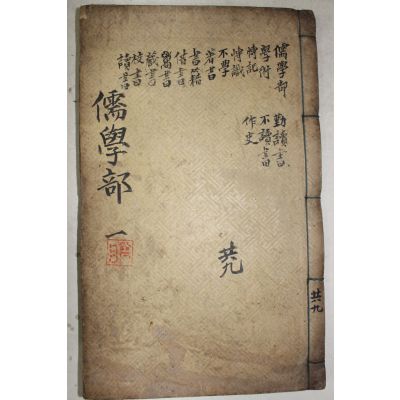 儒學部
學附
博記
博識
不學
著書
書籍
借書
書
藏書
校書
讀書
勤讀書
不讀書
作史
儒學部 一
共九
共九